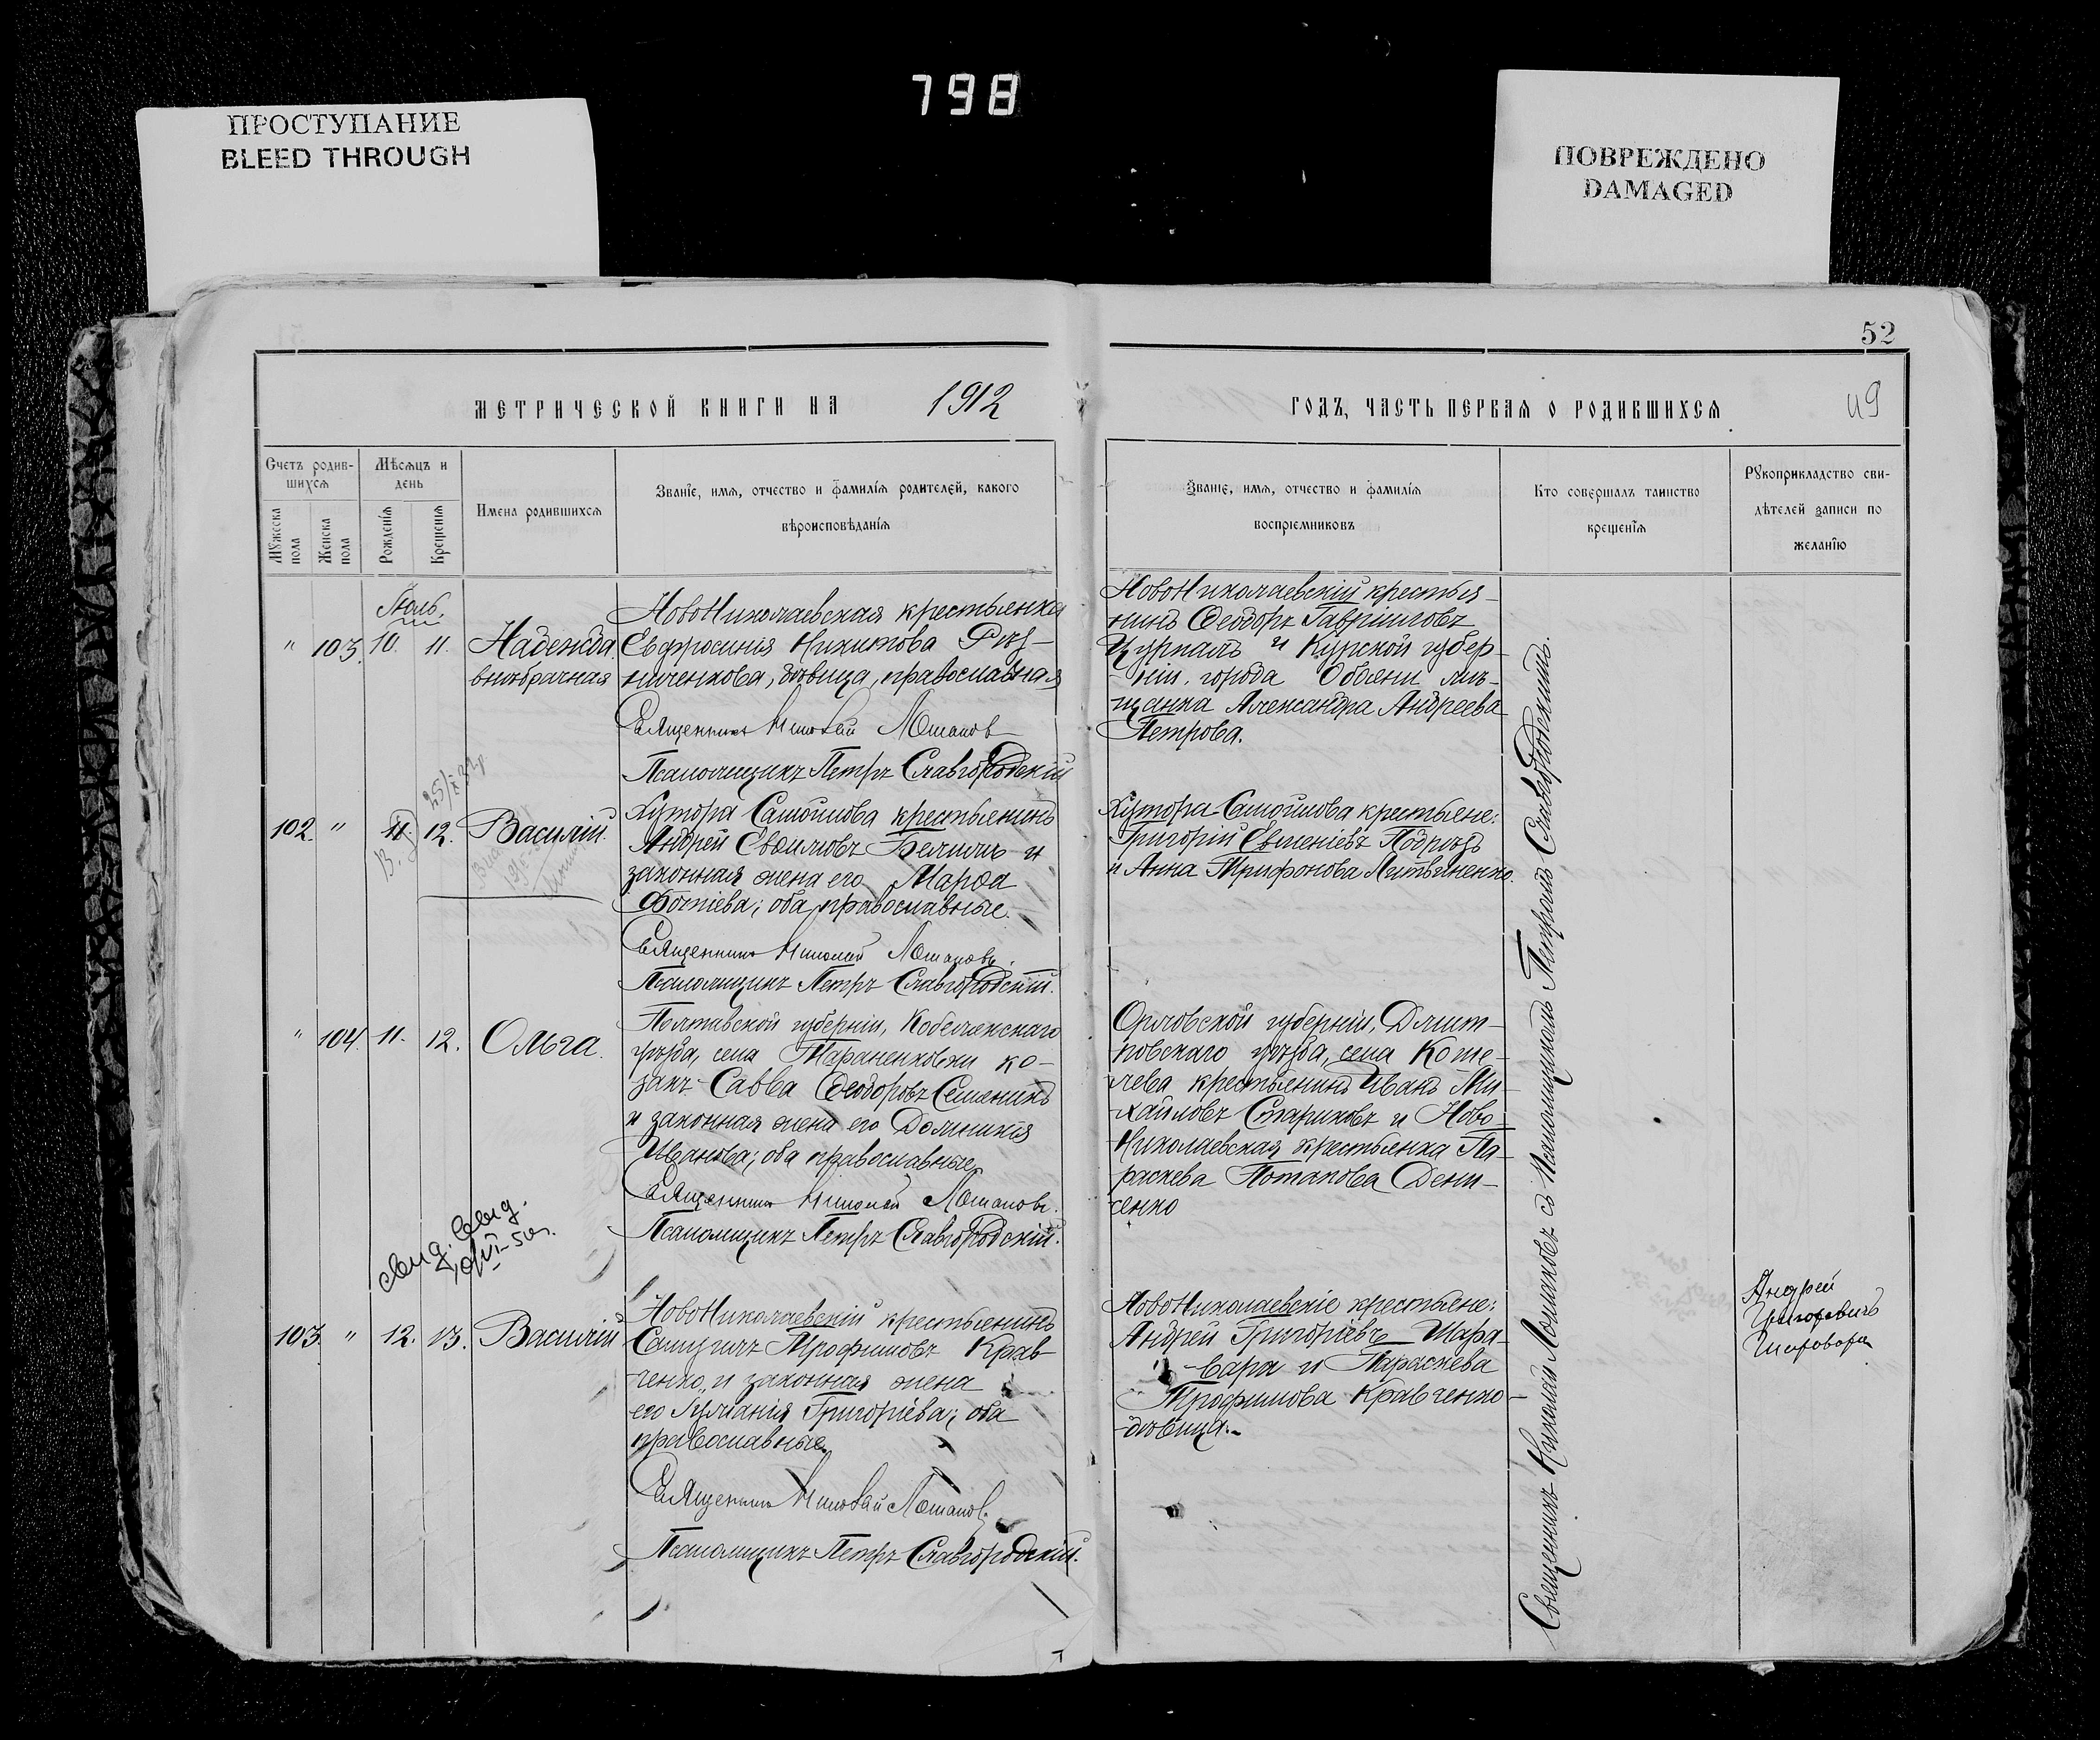 798
ПРОСТУПАНИЕ
BLEED THROUGH
ПОВРЕЖДЕНО
DAMAGED
52
МЕТРИЧЕСКОЙ КНИГИ НА 1912
ГОДЪ, ЧАСТЬ ПЕРВАЯ О РОДИВШИХСЯ
49
Счетъ родив-
шихся
Мѣсяцъ и
день
Мужеска
пола
Женска
пола
Рожденія
Крещенія
Имена родившихся
Званіе, имя, отчество и фамилія родителей, какого
вѣроисповѣданія
Званіе, имя, отчество и фамилія
воспріемниковъ
Кто совершалъ таинство
крещенія
Рукоприкладство сви-
дѣтелей записи по
желанію
Іюль.
" 103. 10. 11. Надежда
внѣбрачная
НовоНиколаевская крестьянка
Евфросинія Никитова Рѣз-
ниченкова, дѣвица, православная
Священникъ Николай Ломаковъ
Псаломщикъ Петръ Славгородскій
НовоНиколаевскій крестья-
нинъ Ѳеодоръ Гавріиловъ
Цурпалъ и Курской губер-
ніи, города Обояни мѣ-
щанка Александра Андреева
Петрова.
102. " 11. 12. Василій.
Хутора Самойлова крестьянинъ
Андрей Евѳиміовъ и
законная жена его Марѳа
Фотіева; оба православные.
Священникъ Николай Ломаковъ.
Псаломщикъ Петръ Славгородскій.
Хутора Самойлова крестьяне:
Григорій Евменіевъ Подрѣзъ
и Анна Трифонова Литвиненко.
" 104. 11. 12. Ольга.
Полтавской губерніи, Кобелякскаго
уѣзда, села Тараненковки ко-
закъ Савва Ѳеодоровъ Семянинъ
и законная жена его Домникія
Иванова; оба православные
Священникъ Николай Ломаковъ.
Псаломщикъ Петръ Славгородскій.
Орловской губерніи, Дмит-
ровскаго уѣзда, села Коше-
лева крестьянинъ Иванъ Ми-
хайловъ Стариковъ и Ново-
Николаевская крестьянка Па-
раскева Потапова Дени-
сенко
103. " 12. 13. Василій
НовоНиколаевскій крестьянинъ
Трофимовъ Крав-
ченко, и законная жена
его Іуліанія Григоріева; оба
православные.
Священникъ Николай Ломаковъ.
Псаломщикъ Петръ Славгородскій.
НовоНиколаевскіе крестьяне:
Андрей Григоріевъ Шара-
вара и Параскева
Трофимова Кравченко-
дѣвица.
Священникъ Николай Ломаковъ съ Псаломщикомъ Петромъ Славгородскимъ.
Андрей
Григоревичъ
Шаровара